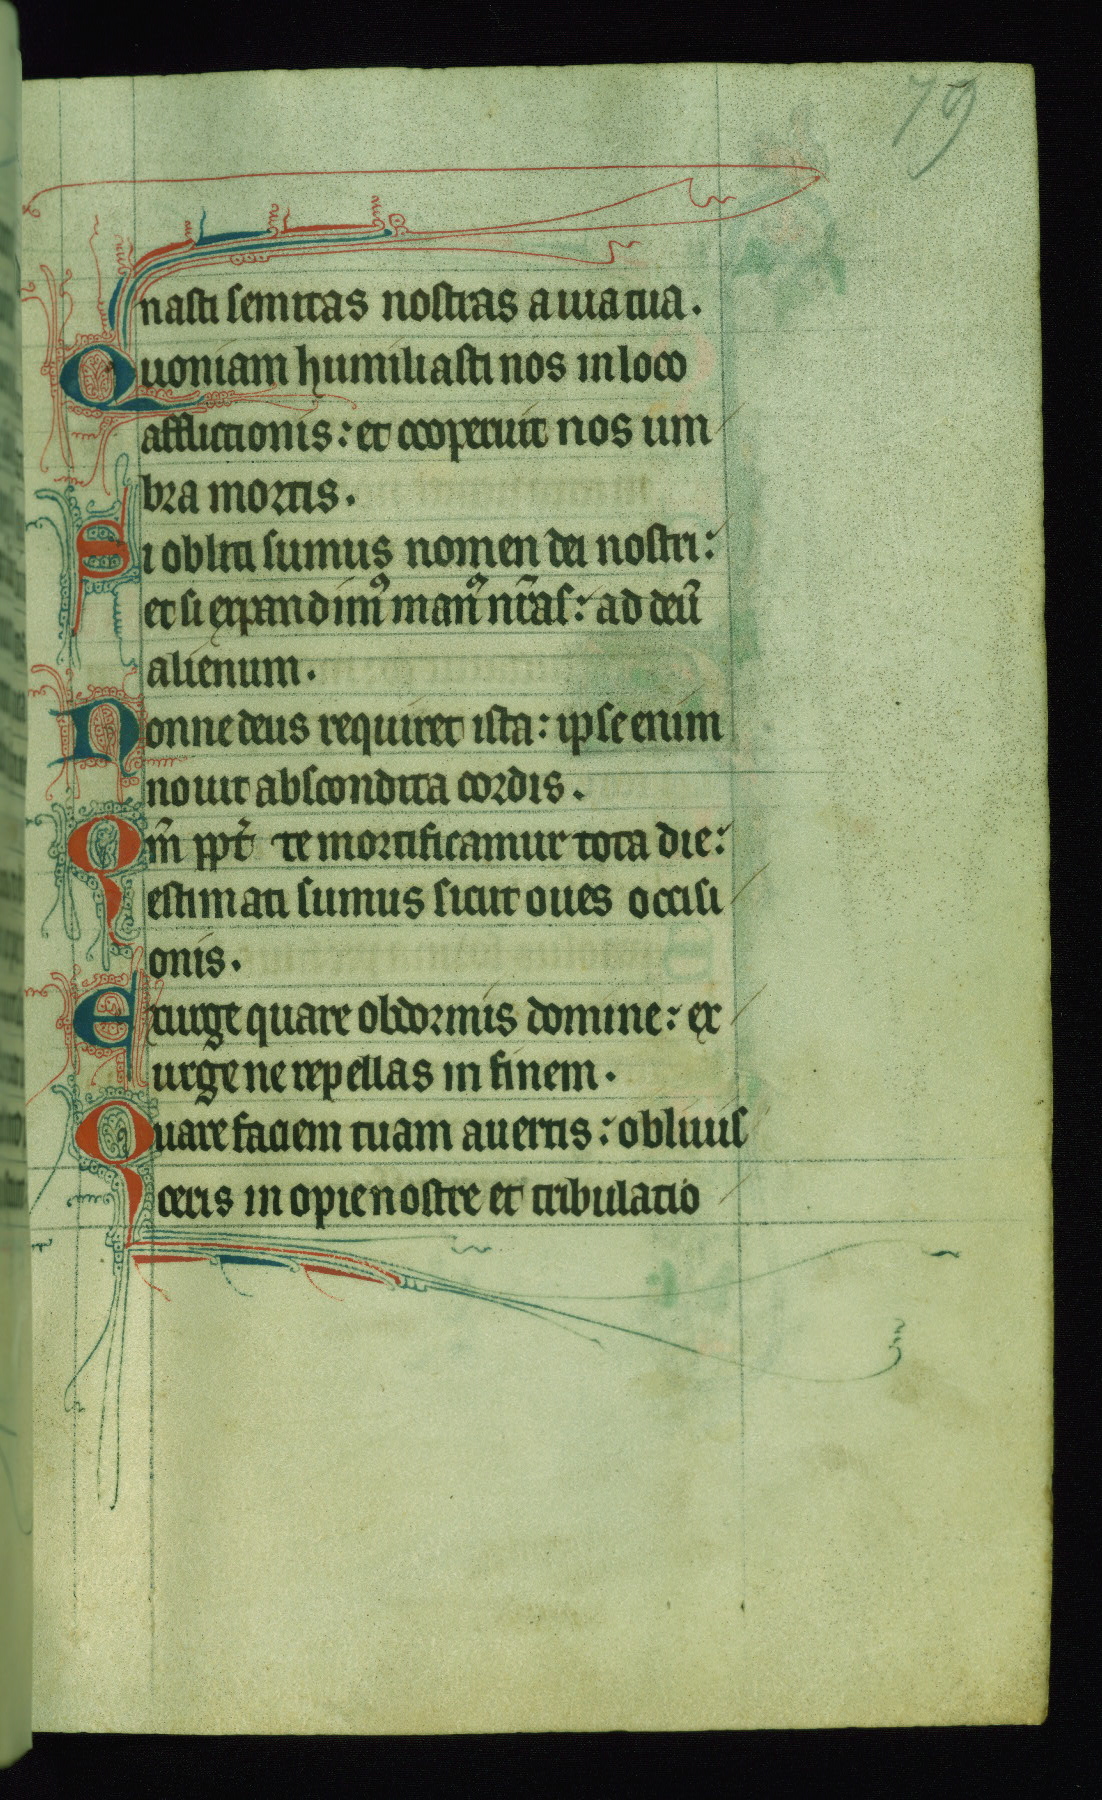 79
nasti semitas nostras a uia tua.
Quoniam humiliasti nos in loco
afflictionis: et cooperuit nos um
bra mortis.
Si obliti sumus nomen dei nostri:
et si expandimꝰ manꝰ nr̃as: ad deũ
alienum.
Nonne deus requiret ista: ipse enim
nouit abscondita cordis.
Qm̃ ꝓpt̃ te mortificamur tota die:
estimati sumus sicut oues occisi
onis.
Exurge quare obdormis domine: ex
urge ne repellas in finem.
Quare faciem tuam auertis: obliuis
ceris inopie nostre et tribulatio